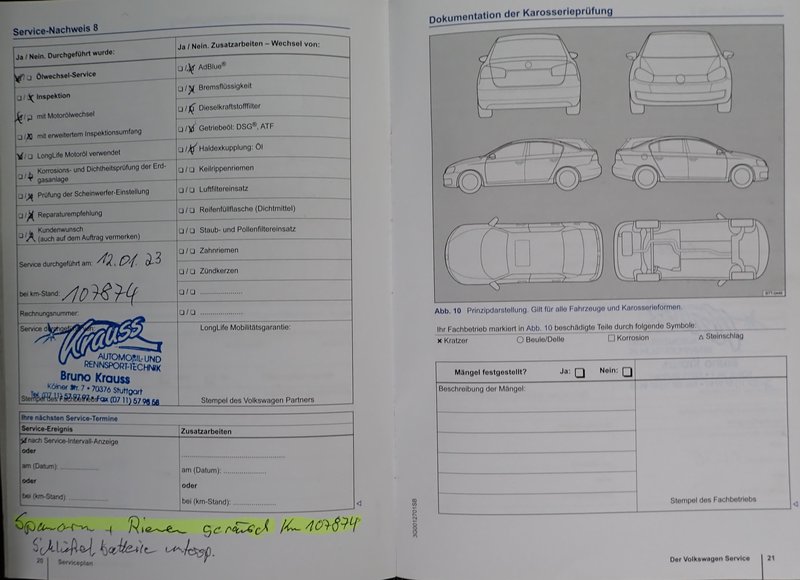 Service-Nachweis 8
Ja / Nein. Durchgeführt wurde:
Ölwechsel-Service
Inspektion
mit Motorölwechsel
mit erweitertem Inspektionsumfang
LongLife Motoröl verwendet
Korrosions- und Dichtheitsprüfung der Erdgasanlage
Prüfung der Scheinwerfer-Einstellung
Reparaturempfehlung
Kundenwunsch
(auch auf dem Auftrag vermerken)
Service durchgeführt am: 12.01.23
bei km-Stand: 107874
Rechnungsnummer:
Service durchgeführt
Krauss
AUTOMOBIL-UND
RENNSPORT-TECHNIK
Bruno Krauss
Kölner Str. 7 • 70376 Stuttgart
Fax (07 11) 57 98 68
Ja / Nein. Zusatzarbeiten – Wechsel von:
AdBlue®
Bremsflüssigkeit
Dieselkraftstofffilter
Getriebeöl: DSG®, ATF
Haldexkupplung: Öl
Keilrippenriemen
Luftfiltereinsatz
Reifenfüllflasche (Dichtmittel)
Staub- und Pollenfiltereinsatz
Zahnriemen
Zündkerzen
LongLife Mobilitätsgarantie:
Stempel des Volkswagen Partners
Ihre nächsten Service-Termine
Service-Ereignis
nach Service-Intervall-Anzeige
oder
am (Datum):
oder
bei (km-Stand):
Zusatzarbeiten
am (Datum):
oder
bei (km-Stand):
+ Riemen geräusch Km 107874
batterie
20 Serviceplan
Dokumentation der Karosserieprüfung
Abb. 10 Prinzipdarstellung. Gilt für alle Fahrzeuge und Karosserieformen.
Ihr Fachbetrieb markiert in Abb. 10 beschädigte Teile durch folgende Symbole:
× Kratzer ○ Beule/Delle □ Korrosion △ Steinschlag
Mängel festgestellt? Ja: Nein:
Beschreibung der Mängel:
Stempel des Fachbetriebs
3G0012701SB
Der Volkswagen Service 21